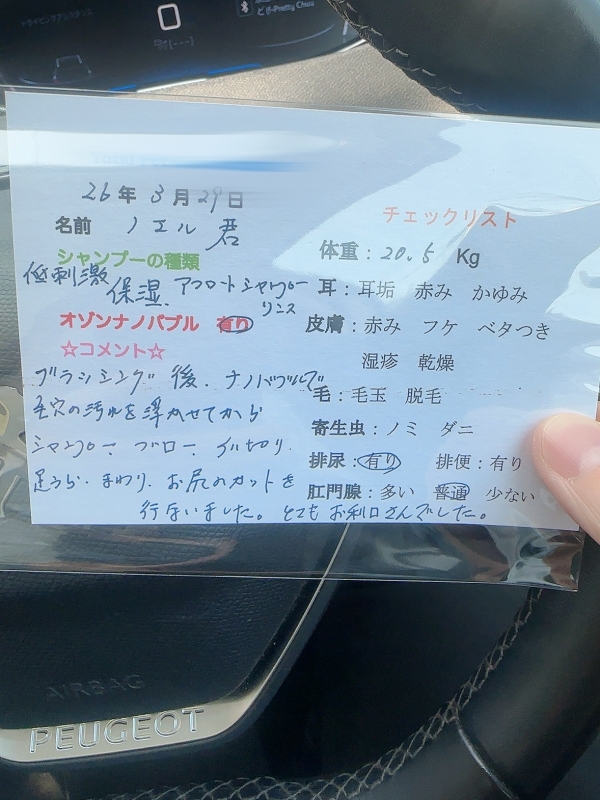 ど!!-Pretty Chou
26年 3月 29日
名前 ノエル 君
シャンプーの種類
低刺激 保湿. アフロートシャンプー
リンス
オゾンナノバブル 有り
☆コメント☆
ブラシング 後. ナノバブルで
毛穴の汚れを浮かせてから
シャンプー. ブロー. 爪切り.
足うら. まわり. お尻のカットを
行ないました。とてもお利口さんでした。
チェックリスト
体重:20.5 Kg
耳:耳垢 赤み かゆみ
皮膚:赤み フケ ベタつき
湿疹 乾燥
毛:毛玉 脱毛
寄生虫:ノミ ダニ
排尿:有り 排便:有り
肛門腺:多い 普通 少ない
AIRBAG
PEUGEOT